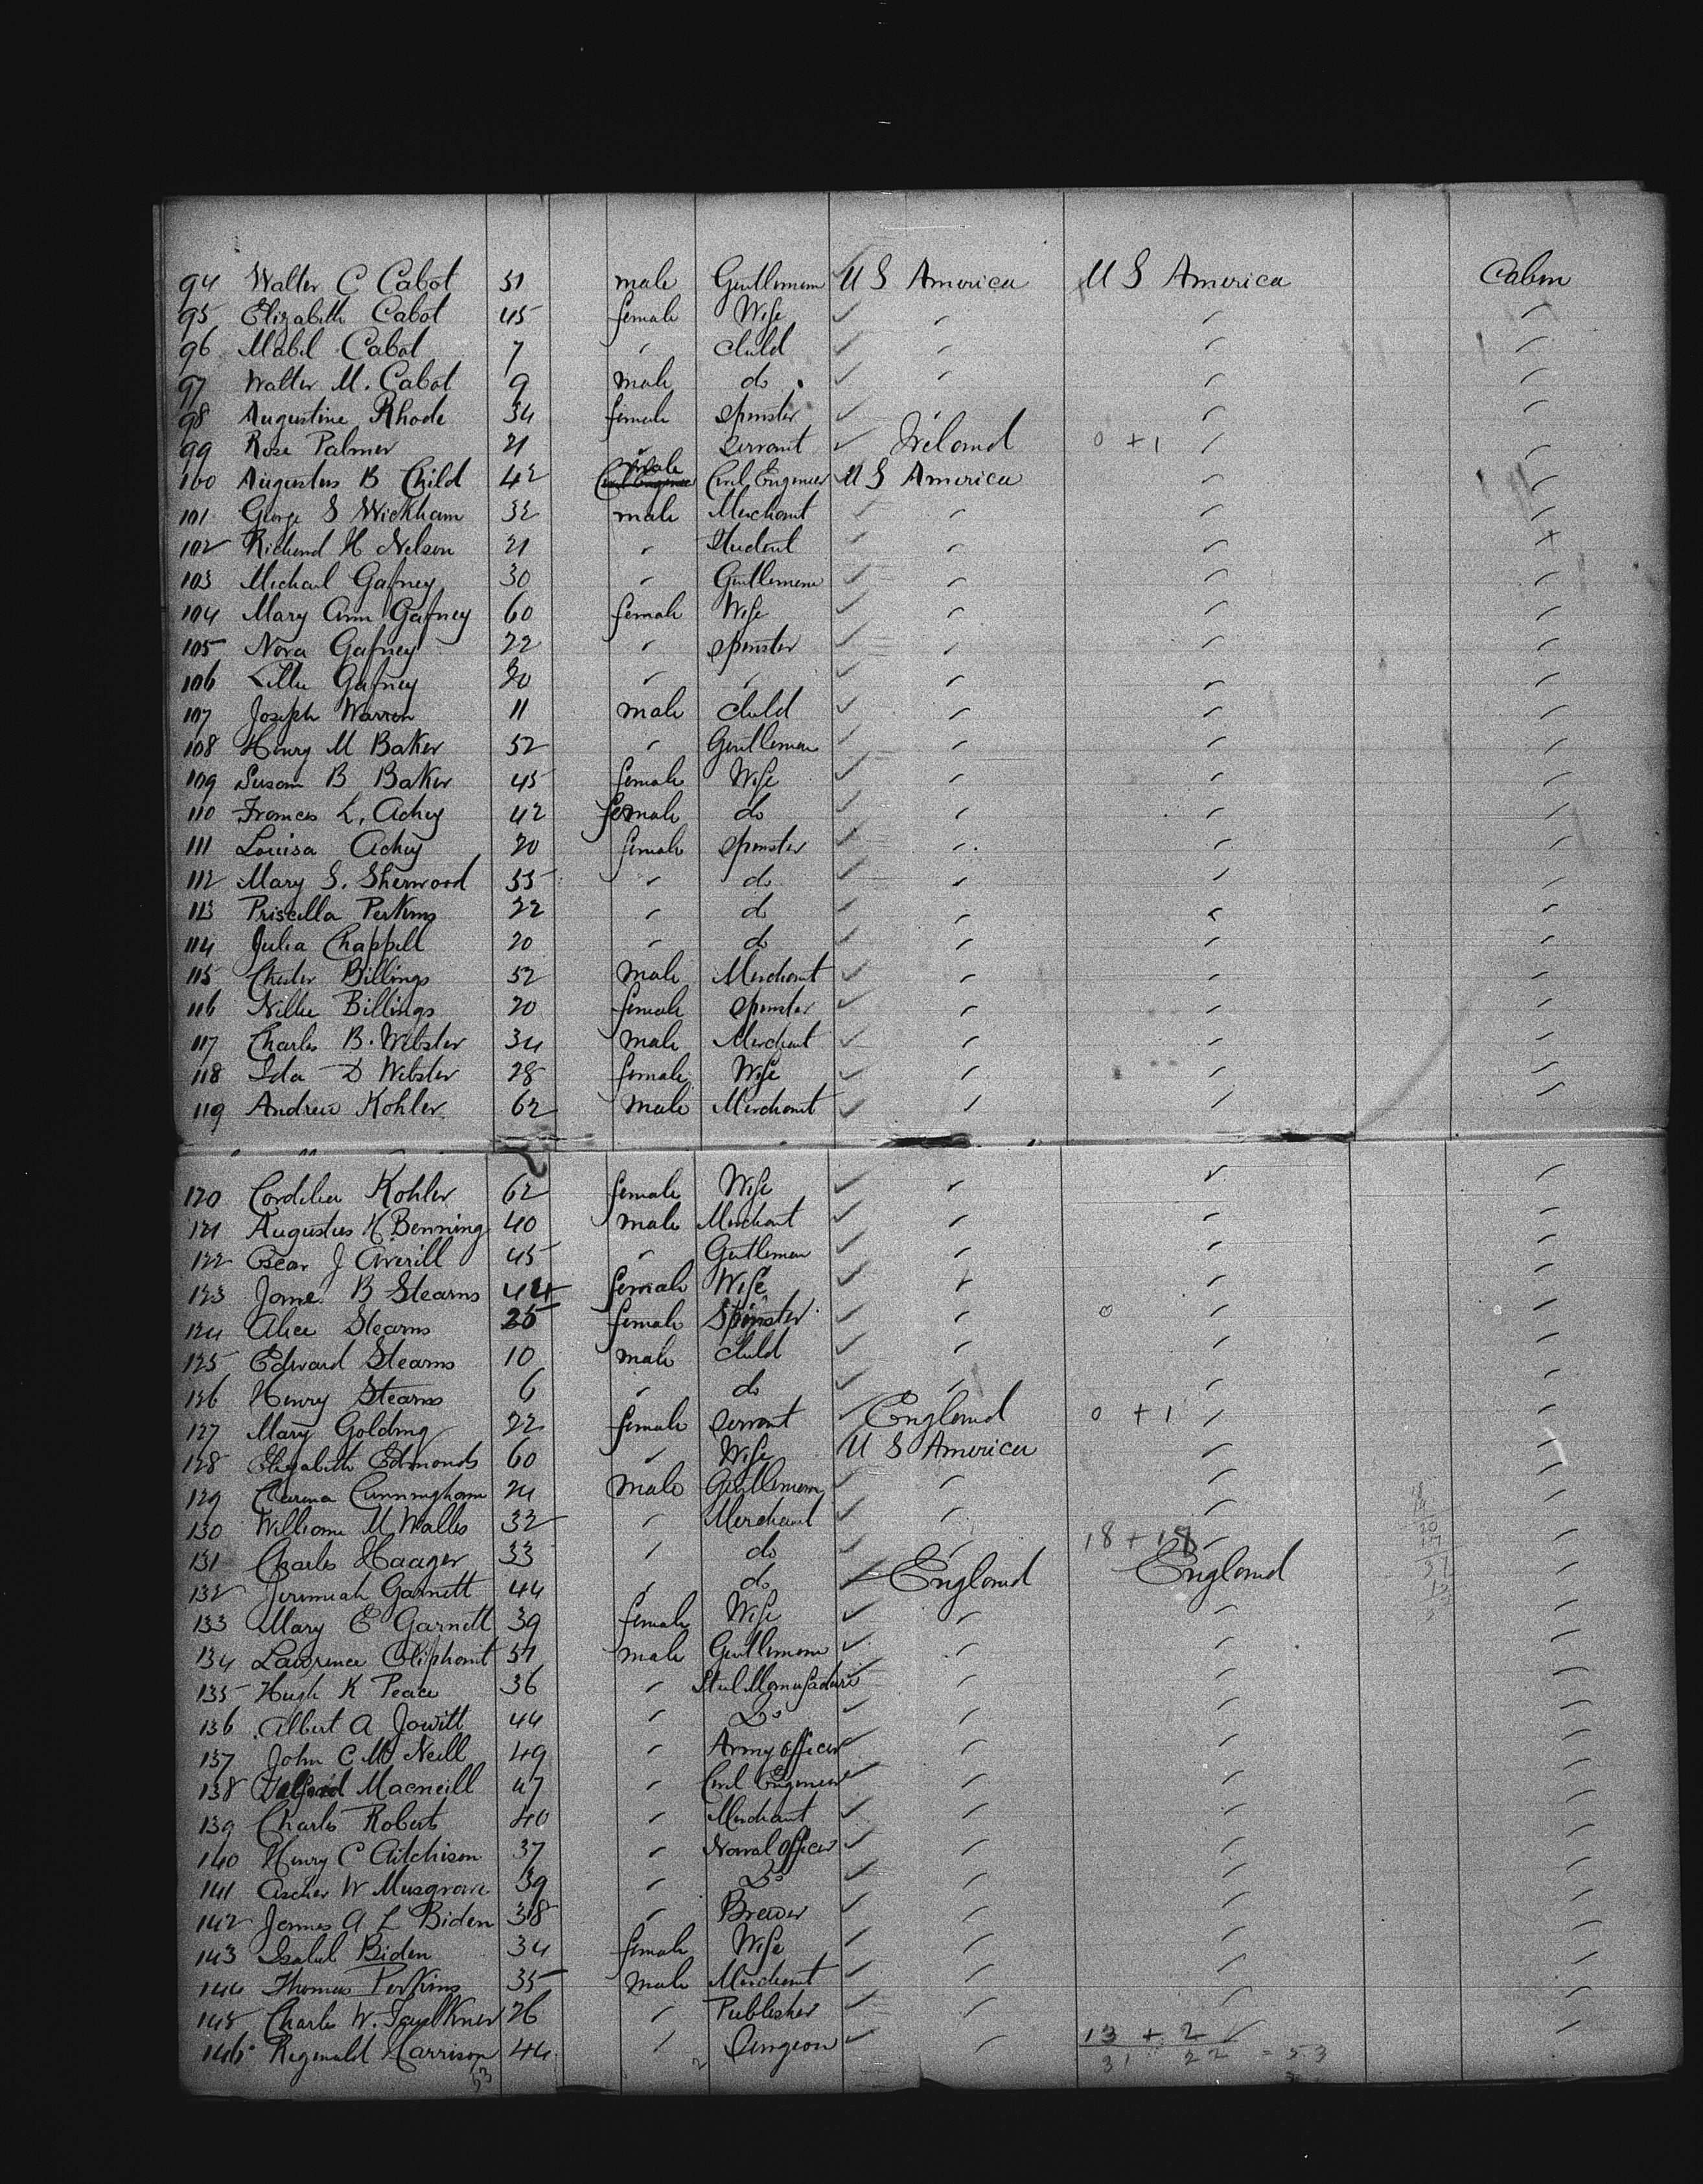 94 Walter C Cabot 51 male Gentleman U S America U S America Cabin
95 Elizabeth Cabot 45 female Wife
96 Mabel Cabot 7 " child
97 Walter M. Cabot 9 male do
98 Augustine Rhode 34 female spinster "
99 Rose Palmer 21 " servant Ireland 0 + 1
100 Augustus B Child 42 male Civil Engineer U S America
101 George S Wickham 32 male Merchant
102 Richard H Nelson 21 " Student
103 Michael Gafney 30 " Gentleman
104 Mary Ann Gafney 60 female Wife
105 Nora Gafney 22 " spinster
106 Lillie Gafney 20 " "
107 Joseph Warren 11 male child
108 Henry M Baker 52 " Gentleman
109 Susan B Baker 45 female Wife
110 Frances L. Achey 42 female do
111 Louisa Achey 20 female spinster
112 Mary S. Sherwood 35 " do
113 Priscilla Perkins 22 " do
114 Julia Chappell 20 " do
115 Chester Billings 52 male Merchant
116 Nillie Billings 20 female spinster
117 Charles B. Webster 34 male Merchant
118 Ida D Webster 28 female Wife
119 Andrew Kohler 62 male Merchant
120 Cordelia Kohler 62 female Wife
121 Augustus H Benning 40 male Merchant
122 Oscar J Averill 45 " Gentleman
123 Jame B Stearns 44 female Wife
124 Alice Stearns 25 female Spinster 0
125 Edward Stearns 10 male child
126 Henry Stearns 6 " do
127 Mary Golding 22 female servant England 0 + 1
128 Elizabeth Edmonds 60 " Wife U S America
129 Cunningham 24 male Gentleman
130 William M Walles 32 " Merchant
131 Charles Haager 33 " do 18 + 18
132 Jeremiah Garnett 44 " do England England
133 Mary E Garnett 39 female Wife
134 Lawrence Oliphant 51 male Gentleman
135 Hugh K Peace 36 " Steel Manufacturer
136 Albert A Jowitt 44 " Do
137 John C Mc Neill 49 " Army officer
138 Macneill 47 " Civil Engineer
139 Charles Robert 40 " Merchant
140 Henry C Aitchison 37 " Naval officer
141 Ascher W Musgrave 39 " Do
142 James A L Biden 38 " Brewer
143 Isabel Biden 34 female Wife
144 Thomas Perkins 35 male Merchant
145 Charles W. Faulkner 26 " Publisher
146 Reginald Harrison 44 " Surgeon 13 + 2
53 2 31 22 = 53